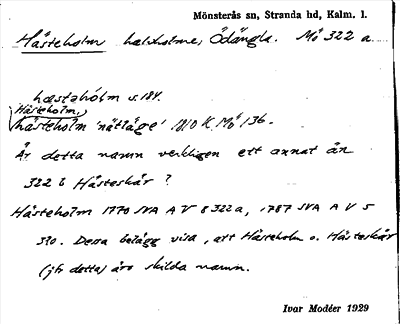 Mönsterås sn, Stranda hd, Kalm. l.
Hästeholm halvholme, Ödängla. Mö 322 a
hæstəhólm s. 184.
Hästeholm,
hästeholm 'nätläge' 1810 K. Mö 136.
Är detta namn verkligen ett annat än
322 b Hästeskär ?
Hästeholm 1770 SVA A V 8 322a, 1787 SVA A V 5
310. Dessa belägg visa, att Hästeholm o. Hästeskär
(jfr detta) äro skilda namn.
Ivar Modéer 1929